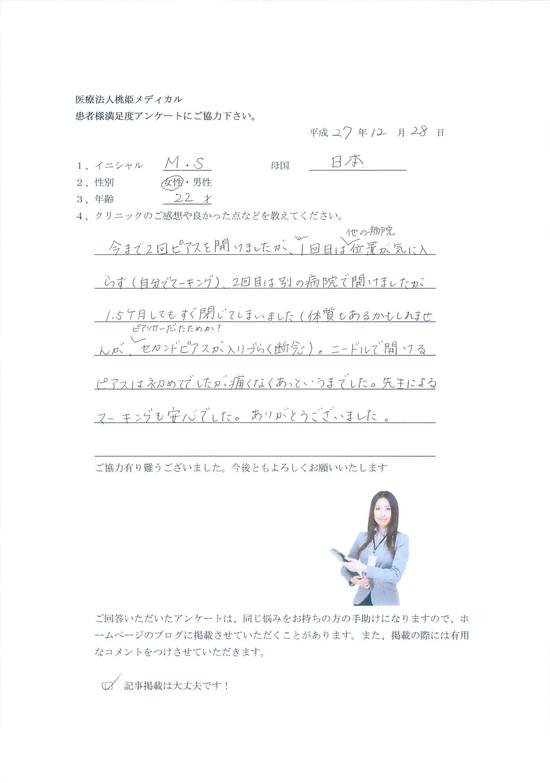 医療法人桃姫メディカル
患者様満足度アンケートにご協力下さい。
平成 27 年 12 月 28 日
1、イニシャル M.S 母国 日本
2、性別 女性・男性
3、年齢 22 才
4、クリニックのご感想や良かった点などを教えてください。
他の病院
今まで2回ピアスを開けましたが、1回目は位置が気に入
らず(自分でマーキング)、2回目は別の病院で開けましたが
1.5ヶ月してもすぐ閉じてしまいました(体質もあるかもしれませ
ピアッサーだったためか?
んが、セカンドピアスが入りづらく断念)。ニードルで開ける
ピアスは初めてでしたが痛くなくあっというまでした。先生による
マーキングも安心でした。ありがとうございました。
ご協力有り難うございました。今後ともよろしくお願いいたします
ご回答いただいたアンケートは、同じ悩みをお持ちの方の手助けになりますので、ホ
ームページのブログに掲載させていただくことがあります。また、掲載の際には有用
なコメントをつけさせていただきます。
☑ 記事掲載は大丈夫です!